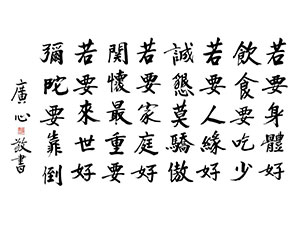 若要身體好
飲食要吃少
若要人緣好
誠懇莫驕傲
若要家庭好
關懷最重要
若要來世好
彌陀要靠倒
廣心敬書